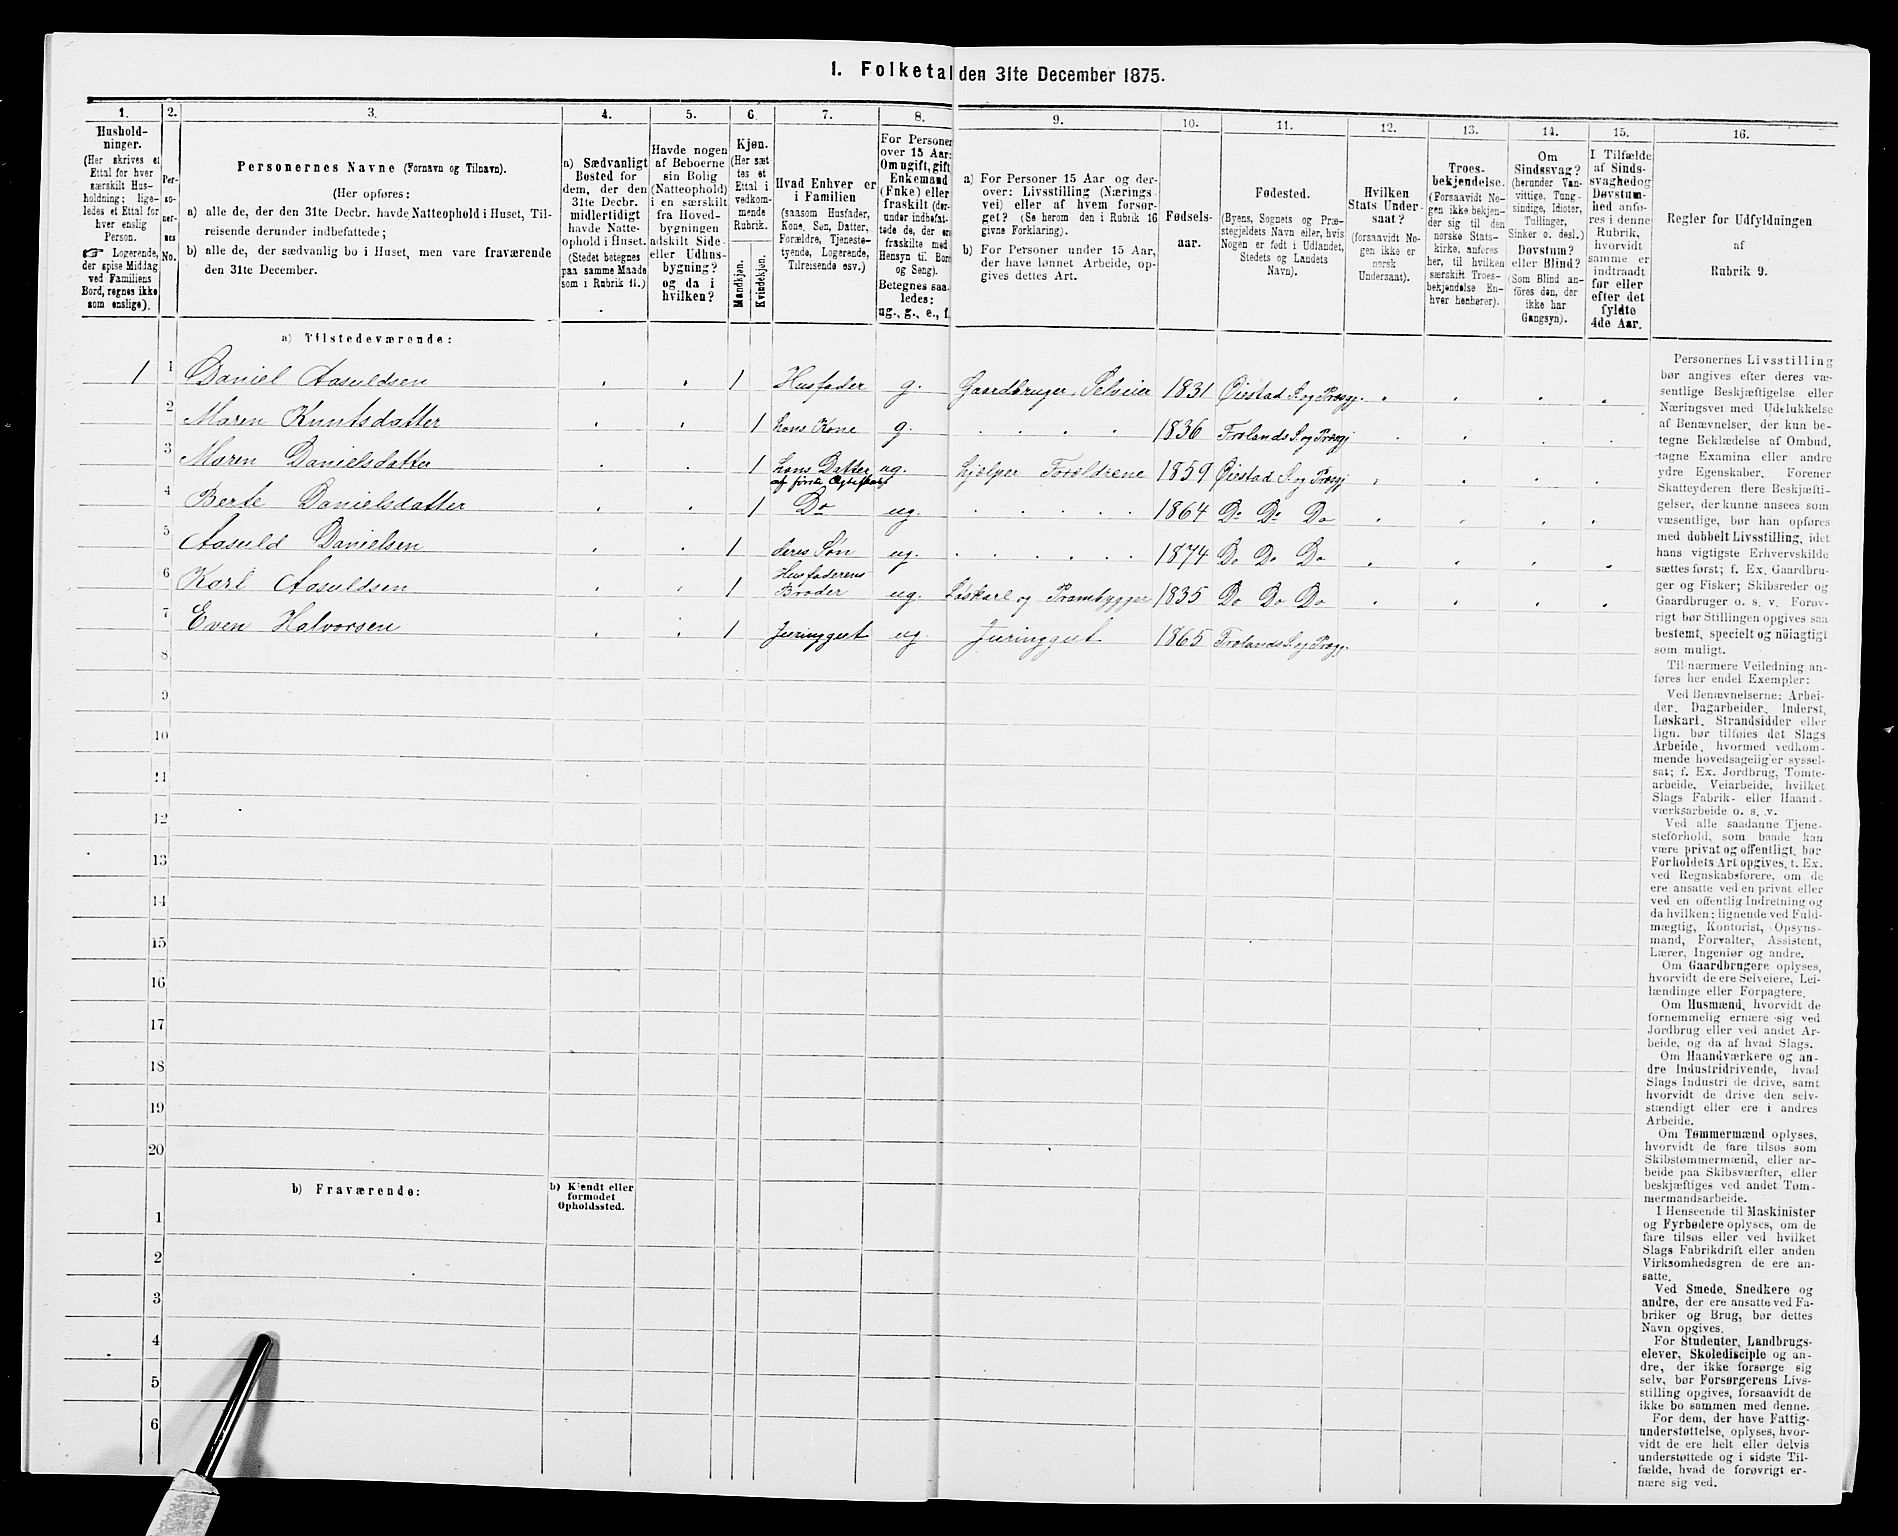 1. Folketal den 31te December 1875.
1.
Hushold-
ninger.
(Her skrives et
Ettal for hver
særskilt Hus-
holdning; lige-
ledes et Ettal for
hver enslig
Person.
☞ Logerende,
der spise Middag
ved Familiens
Bord, regnes ikke
som enslige).
2.
Per-
so-
ner-
nes
No.
3.
Personernes Navne (Fornavn og Tilnavn).
(Her opføres:
a) alle de, der den 31te Decbr. havde Natteophold i Huset, Til-
reisende derunder indbefattede;
b) alle de, der sædvanlig bo i Huset, men vare fraværende
den 31te December.
4.
a) Sædvanligt
Bosted for
dem, der den
31te Decbr.
midlertidigt
havde Natte-
ophold i Huset.
(Stedet betegnes
paa samme Maade
som i Rubrik 11.)
5.
Havde nogen
af Beboerne
sin Bolig
(Natteophold)
i en særskilt
fra Hoved-
bygningen
adskilt Side-
eller Udhus-
bygning?
og da i
hvilken?
6.
Kjøn.
(Her sæt
tes et
Ettal i
vedkom-
mende
Rubrik.
Mandkjøn.
Kvindekjøn.
7.
Hvad Enhver er
i Familien
(saasom Husfader,
Kone, Søn, Datter,
Forældre, Tjeneste-
tyende, Logerende,
Tilreisende osv.)
8.
For Personer
over 15 Aar:
Om ugift, gift,
Enkemand
(Enke) eller
fraskilt (der-
under indbefat-
tede de, der er
fraskilte med
Hensyn til Bord
og Seng).
Betegnes saa-
ledes:
ug., g., e., f.
9.
a) For Personer 15 Aar og der-
over: Livsstilling (Nærings-
vei) eller af hvem forsør-
get? (Se herom den i Rubrik 16
givne Forklaring).
b) For Personer under 15 Aar,
der have lønnet Arbeide, op-
gives dettes Art.
10.
Fødsels-
aar.
11.
Fødested.
(Byens, Sognets og Præ-
stegjeldets Navn eller, hvis
Nogen er født i Udlandet,
Stedets og Landets
Navn).
12.
Hvilken
Stats Under-
saat?
(forsaavidt No-
gen ikke er
norsk
Undersaat).
13.
Troes-
bekjendelse.
(Forsaavidt No-
gen ikke bekjen-
der sig til den
norske Stats-
kirke, anføres
her, til hvilken
særskilt Troes-
bekjendelse En-
hver henhører).
14.
Om
Sindssvag?
(herunder Van-
vittige, Tung-
sindige, Idioter,
Tullinger,
Sinker o. desl.)
Døvstum?
eller Blind?
(Som Blind an-
føres den, der
ikke har
Gangsyn).
15.
I Tilfælde
af Sinds-
svaghed og
Døvstum-
hed anfø-
res i denne
Rubrik,
hvorvidt
samme er
indtraadt
før eller
efter det
fyldte
4de Aar.
16.
Regler for Udfyldningen
af
Rubrik 9.
a) Tilstedeværende:
1 1 Daniel Aasuldsen 1 Husfader g. Gaardbruger, Selveier 1831 Øiestad S. og Præsgj.
2 Maren Knutsdatter 1 hans Kone g. 1836 Frolands S. og Præsgj
3 Maren Danielsdatter 1 hans Datter ug. hjelper Forældrene 1859 Øiestad S. og Præsgj
af første Egteskab
4 Berte Danielsdatter 1 Do ug. 1864 Do Do Do
5 Aasuld Danielsen 1 deres Søn ug. 1874 Do Do Do
6 Karl Aasuldsen 1 Husfaderens
Broder ug. Løskarl og Prambygger 1835 Do Do Do
7 Even Halvorsen 1 ug. 1865 Frolands S. og Præsgj.
8
9
10
11
12
13
14
15
16
17
18
19
20
b) Fraværende:
b) Kjendt eller
formodet
Opholdssted.
1
2
3
4
5
6
Personernes Livsstilling
bør angives efter deres væ-
sentlige Beskjæftigelse eller
Næringsvei med Udelukkelse
af Benævnelser, der kun be-
tegne Beklædelse af Ombud,
tagne Examina eller andre
ydre Egenskaber. Forener
Skatteyderen flere Beskjæfti-
gelser, der kunne ansees som
væsentlige, bør han opføres
med dobbelt Livsstilling, idet
hans vigtigste Erhvervskilde
sættes først; f. Ex. Gaardbru-
ger og Fisker; Skibsreder og
Gaardbruger o. s. v. Forøv-
rigt bør Stillingen opgives saa
bestemt, specielt og nøiagtigt
som muligt.
Til nærmere Veiledning an-
føres her endel Exempler:
Ved Benævnelserne: Arbei-
der, Dagarbeider, Inderst,
Løskarl, Strandsidder eller
lign. bør tilføies det Slags
Arbeide, hvormed vedkom-
mende hovedsagelig er syssel-
sat; f. Ex. Jordbrug, Tomte-
arbeide, Veiarbeide, hvilket
Slags Fabrik- eller Haand-
værksarbeide o. s. v.
Ved alle saadanne Tjene-
steforhold, som baade kan
være privat og offentligt, bør
Forholdets Art opgives, t. Ex.
ved Regnskabsførere, om de
ere ansatte ved en privat eller
ved en offentlig Indretning og
da hvilken; lignende ved Fuld-
mægtig, Kontorist, Opsyns-
mand, Forvalter, Assistent,
Lærer, Ingeniør og andre.
Om Gaardbrugere oplyses,
hvorvidt de ere Selveiere, Lei-
lændinge eller Forpagtere.
Om Husmænd, hvorvidt de
fornemmelig ernære sig ved
Jordbrug eller ved andet Ar-
beide, og da af hvad Slags.
Om Haandværkere og an-
dre Industridrivende, hvad
Slags Industri de drive, samt
hvorvidt de drive den selv-
stændigt eller ere i andres
Arbeide.
Om Tømmermænd oplyses,
hvorvidt de fare tilsøs som
Skibstømmermænd, eller ar-
beide paa Skibsværfter, eller
beskjæftiges ved andet Tøm-
mermandsarbeide.
I Henseende til Maskinister
og Fyrbødere oplyses, om de
fare tilsøs eller ved hvilket
Slags Fabrikdrift eller anden
Virksomhedsgren de ere an-
satte.
Ved Smede, Snedkere og
andre, der ere ansatte ved Fa-
briker og Brug, bør dettes
Navn opgives.
For Studenter, Landbrugs-
elever, Skoledisciple og an-
dre, der ikke forsørge sig
selv, bør Forsørgerens Livs-
stilling opgives, forsaavidt de
ikke bo sammen med denne.
For dem, der have Fattig-
understøttelse, oplyses, hvor-
vidt de ere helt eller delvis
understøttede og i sidste Til-
fælde, hvad de forøvrigt er-
nære sig ved.